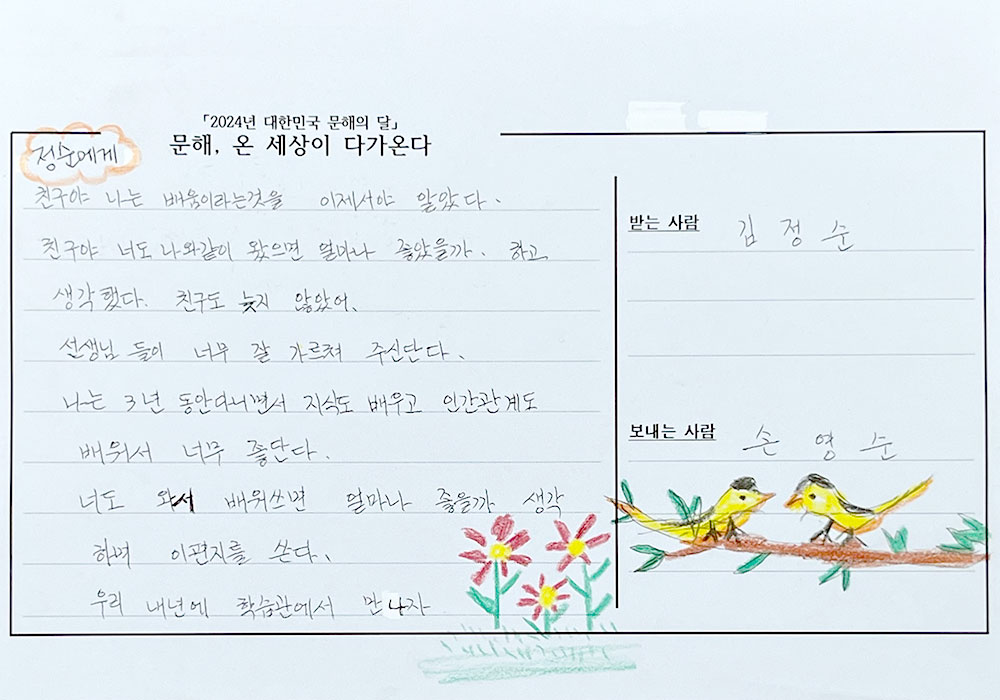 「2024년 대한민국 문해의 달」
문해, 온 세상이 다가온다
정순에게
친구야 나는 배움이라는것을 이제서야 알았다.
친구야 너도 나와같이 왔으면 얼마나 좋았을까. 하고
생각했다. 친구도 늦지 않았어.
선생님 들이 너무 잘 가르쳐 주신단다.
나는 3년 동안다니면서 지식도 배우고 인간관계도
배워서 너무 좋단다.
너도 와서 배워쓰면 얼마나 좋을까 생각
하며 이편지를 쓴다.
우리 내년에 학습관에서 만나자
받는 사람 김정순
보내는 사람 손영순